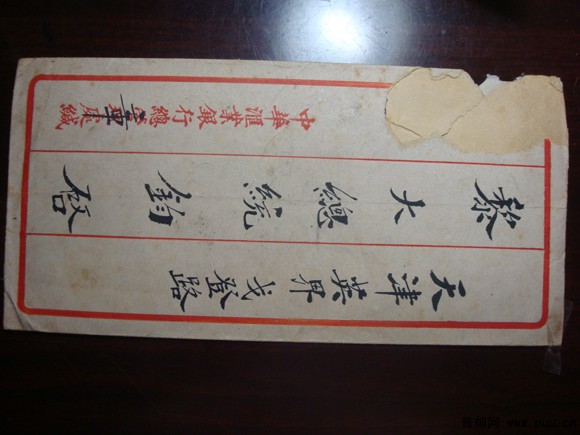 天津英界戈登路
黎大總統鈞啟
中華滙業銀行總處緘